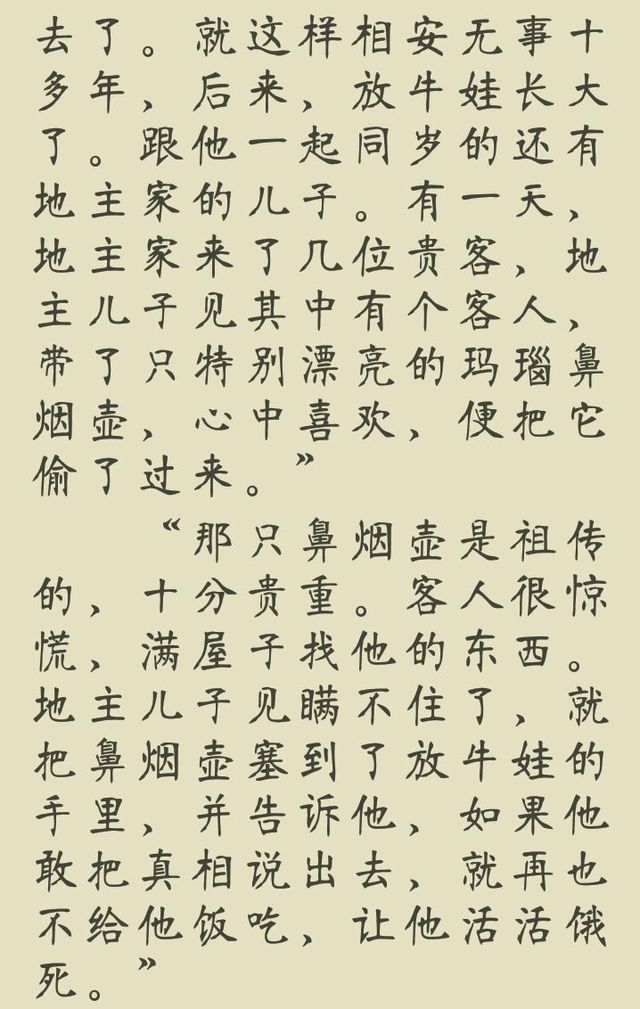 去了。就这样相安无事十
多年，后来，放牛娃长大
了。跟他一起同岁的还有
地主家的儿子。有一天，
地主家来了几位贵客，地
主儿子见其中有个客人，
带了只特别漂亮的玛瑙鼻
烟壶，心中喜欢，便把它
偷了过来。”
“那只鼻烟壶是祖传
的，十分贵重。客人很惊
慌，满屋子找他的东西。
地主儿子见瞒不住了，就
把鼻烟壶塞到了放牛娃的
手里，并告诉他，如果他
敢把真相说出去，就再也
不给他饭吃，让他活活饿
死。”